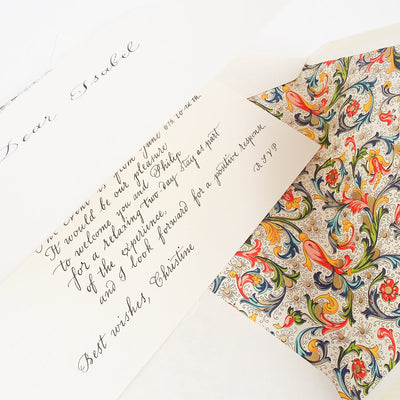 Dear Isabel
is from June 9th 10 a.m.
It would be our pleasure
to welcome you and Philip
for a relaxing two day stay as part
of the experience,
and I look forward for a positive response
R.S.V.P
Best wishes, Christine